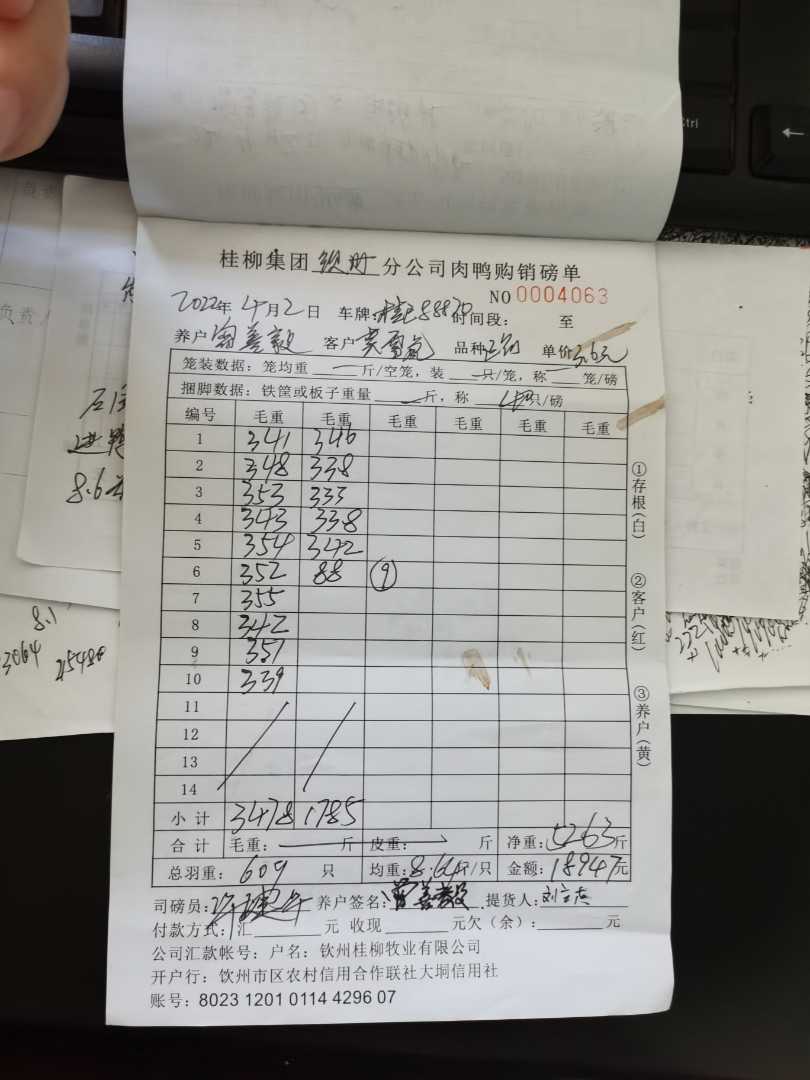 桂柳集团 钦州 分公司肉鸭购销磅单
NO 0004063
2022年 4月 2日 车牌: 时间段: 至
养户 客户 品种 单价 3.6元
笼装数据: 笼均重 — 斤/空笼, 装 — 只/笼, 称 笼/磅
捆脚数据: 铁筐或板子重量 — 斤, 称 只/磅
编号 毛重 毛重 毛重 毛重 毛重 毛重
1 341 346
2 348 338
3 353 333
4 343 338
5 354 342
6 352 88 ⑨
7 355
8 342
9 351
10 339
11
12
13
14
小计 3478 1785
合计 毛重: — 斤 皮重: 斤 净重: 5263斤
总羽重: 609 只 均重: 8.64斤/只 金额: 18947元
司磅员: 养户签名: 提货人:
付款方式: 汇 元 收现 元欠(余): 元
公司汇款帐号: 户名: 钦州桂柳牧业有限公司
开户行: 钦州市区农村信用合作联社大垌信用社
账号: 8023 1201 0114 4296 07
①存根(白)
②客户(红)
③养户(黄)
8.1
3064 25480
Ctrl
←